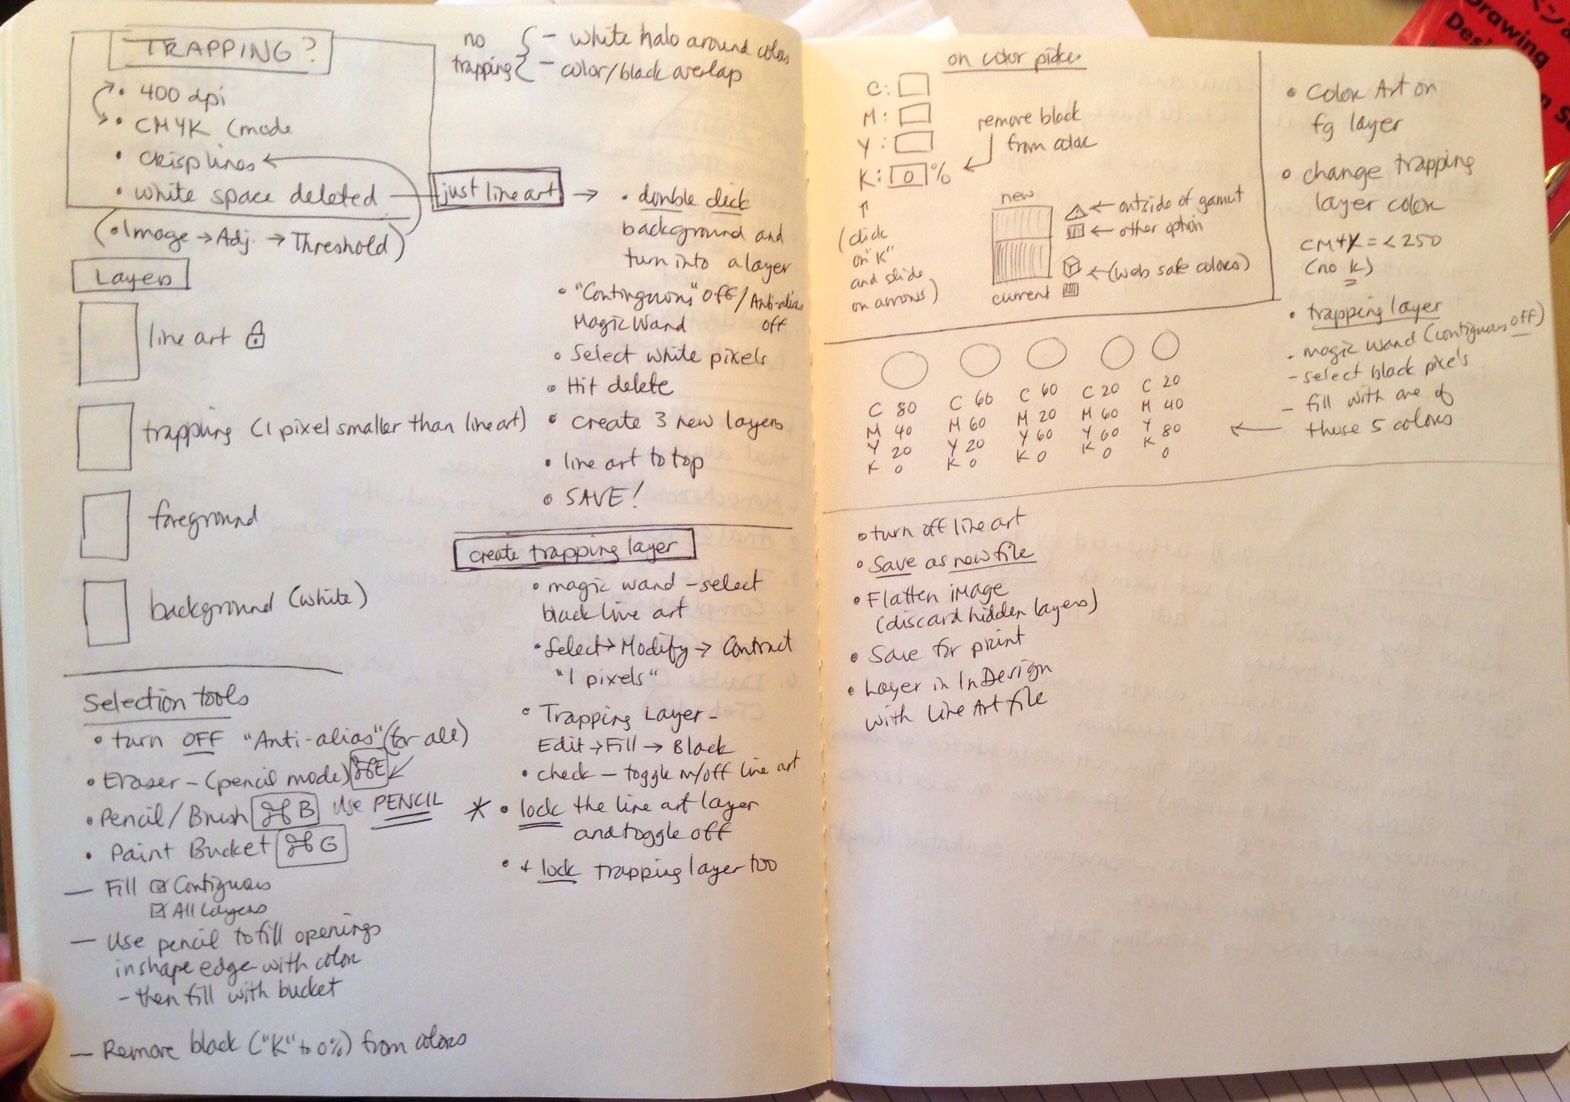 TRAPPING?
• 400 dpi
• CMYK (mode
• crisp lines
• white space deleted
(• Image → Adj. → Threshold)
no trapping { – white halo around colors
– color/black overlap
Layers
line art
trapping (1 pixel smaller than line art)
foreground
background (white)
Selection tools
• turn OFF "Anti-alias" (for all)
• Eraser – (pencil mode) ⌘E
• Pencil/Brush ⌘B Use PENCIL
• Paint Bucket ⌘G
— Fill ☑ Contiguous
☑ All Layers
— Use pencil to fill openings
in shape edge with color
– then fill with bucket
— Remove black ("K" to 0%) from colors
just line art → • double click
background and
turn into a layer
• "Contiguous" Off / Anti-alias
Magic Wand off
• Select white pixels
• Hit delete
• create 3 new layers
• line art to top
• SAVE!
create trapping layer
• magic wand – select
black line art
• Select → Modify → Contract
"1 pixels"
• Trapping Layer –
Edit → Fill → Black
• check – toggle on/off line art
* • lock the line art layer
and toggle off
• + lock trapping layer too
on color picker
C:
M:
Y:
K: 0 %
↑
(click
on "K"
and slide
on arrows)
remove black
from color
new
current
← outside of gamut
← other option
← (web safe colors)
• Color Art on
fg layer
• change trapping
layer color
CMYK = < 250
(no K)
• trapping layer
- magic wand (contiguous off)
- select black pixels
- fill with one of
these 5 colors
C 80 C 60 C 60 C 20 C 20
M 40 M 60 M 20 M 60 M 40
Y 20 Y 20 Y 60 Y 60 Y 80
K 0 K 0 K 0 K 0 K 0
• turn off line art
• Save as new file
• Flatten image
(discard hidden layers)
• Save for print
• Layer in InDesign
with Line Art file
Drawing